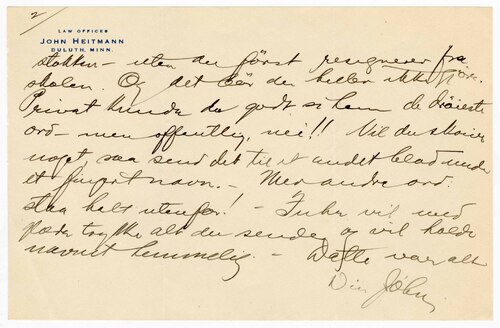 2/
LAW OFFICES
JOHN HEITMANN
DULUTH, MINN.
stokken – uten du först resignerer fra
skolen. Og det bör du heller ikke gjöre.
Privat kunde du godt si ham de dröieste
ord – men offentlig, nei!! Vil du skrive
noget, saa send det til et andet blad under
et navn. – Med andre ord:
staa helt utenfor! – vil med
glæde trykke alt du sender og vil holde
navnet hemmelig. – Dette var alt
Din John